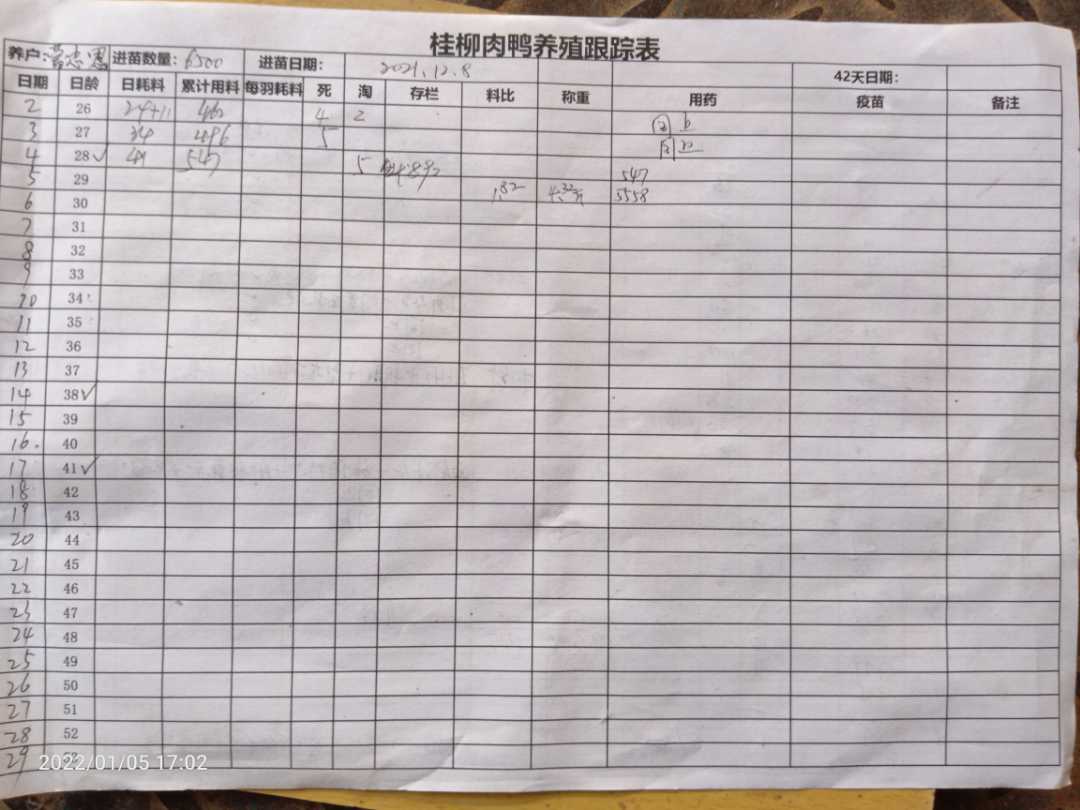 桂柳肉鸭养殖跟踪表
养户: 进苗数量: 6500 进苗日期: 2021.12.8 42天日期:
日期 日龄 日耗料 累计用料 每羽耗料 死 淘 存栏 料比 称重 用药 疫苗 备注
2 26 24+11 462 4 2
3 27 34 496 5
4 28✓ 547 5
5 29 547
6 30 1.82 4.32斤 5558
7 31
8 32
9 33
10 34
11 35
12 36
13 37
14 38✓
15 39
16. 40
17 41✓
18 42
19 43
20 44
21 45
22 46
23 47
24 48
25 49
26 50
27 51
28 52
29
2022/01/05 17:02